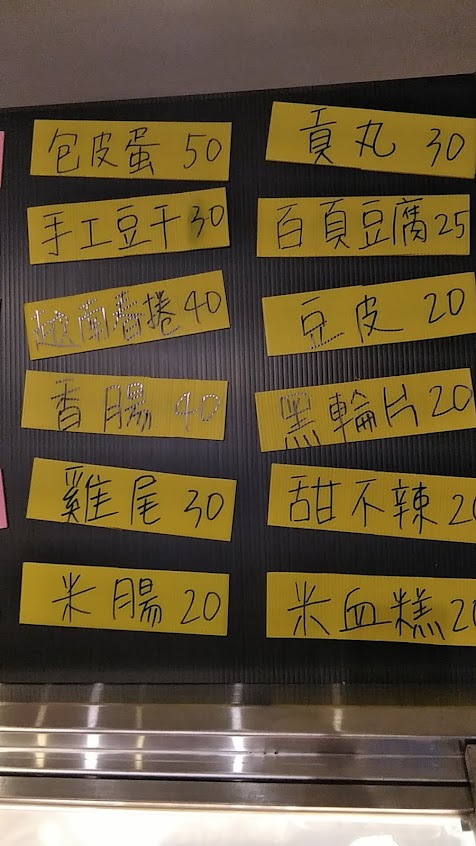 包皮蛋 50
手工豆干 30
越南春捲 40
香腸 40
雞尾 30
米腸 20
貢丸 30
百頁豆腐 25
豆皮 20
黑輪片 20
甜不辣 20
米血糕 20